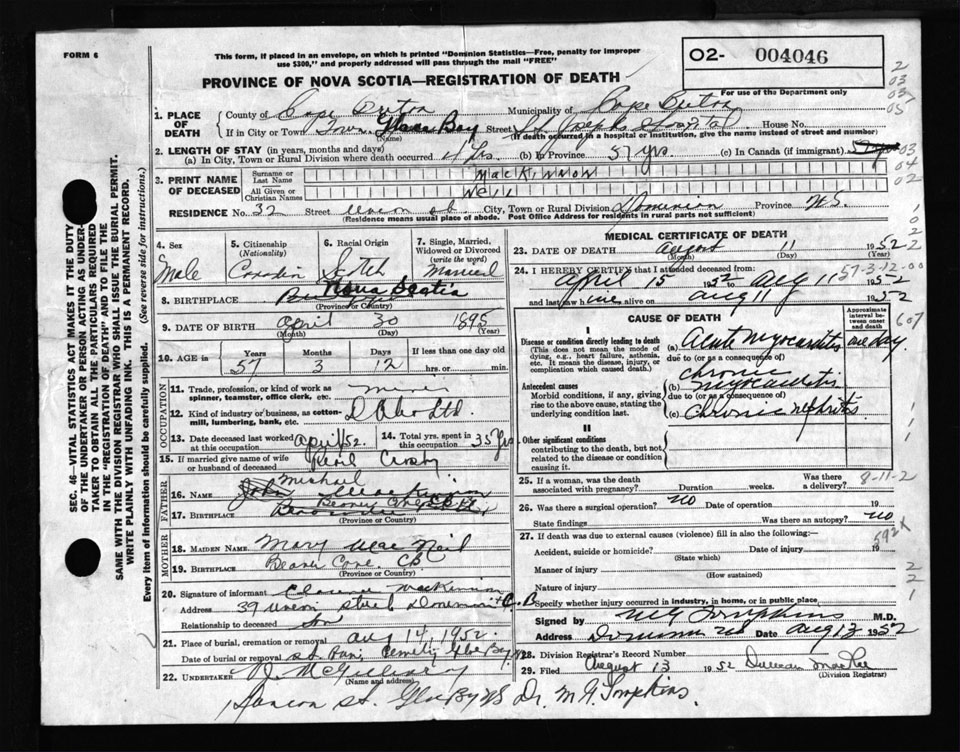 FORM 6
This form, if placed in an envelope, on which is printed "Dominion Statistics—Free, penalty for improper
use $300," and properly addressed will pass through the mail "FREE"
O2- 004046
For use of the Department only
PROVINCE OF NOVA SCOTIA—REGISTRATION OF DEATH
SEC. 46—VITAL STATISTICS ACT MAKES IT THE DUTY
OF THE UNDERTAKER OR PERSON ACTING AS UNDER-
TAKER TO OBTAIN ALL THE PARTICULARS REQUIRED
IN THE "REGISTRATION OF DEATH" AND TO FILE THE
SAME WITH THE DIVISION REGISTRAR WHO SHALL ISSUE THE BURIAL PERMIT.
WRITE PLAINLY WITH UNFADING INK. THIS IS A PERMANENT RECORD.
Every item of information should be carefully supplied. (See reverse side for instructions.)
1. PLACE OF DEATH County of Cape Breton Municipality of Cape Breton
If in City or Town Town Glace Bay Street St Josephs Hospital House No.
(Name) (If death occurred in a hospital or institution, give the name instead of street and number)
2. LENGTH OF STAY (in years, months and days)
(a) In City, Town or Rural Division where death occurred 4 hrs. (b) In Province 57 yrs. (c) In Canada (if immigrant) 57 yrs
3. PRINT NAME OF DECEASED Surname or Last Name MacKinnon
All Given or Christian Names Neil
RESIDENCE No. 32 Street Union st City, Town or Rural Division Dominion Province N.S.
(Residence means usual place of abode. Post Office Address for residents in rural parts not sufficient)
4. Sex Male
5. Citizenship (Nationality)
6. Racial Origin Scotch
7. Single, Married, Widowed or Divorced (write the word) Married
8. BIRTHPLACE Nova Scotia
(Province or Country)
9. DATE OF BIRTH April 30 1895
(Month) (Day) (Year)
10. AGE in Years 57 Months 3 Days 12 If less than one day old hrs. or min.
OCCUPATION
11. Trade, profession, or kind of work as spinner, teamster, office clerk, etc. Miner
12. Kind of industry or business, as cotton-mill, lumbering, bank, etc.
13. Date deceased last worked at this occupation April/52.
14. Total yrs. spent in this occupation 35 yrs
15. If married give name of wife or husband of deceased Crosby
FATHER
16. NAME John Michael MacKinnon
17. BIRTHPLACE Beaver Cove C.B.
(Province or Country)
MOTHER
18. MAIDEN NAME Mary MacNeil
19. BIRTHPLACE Beaver Cove. CB
(Province or Country)
20. Signature of informant Clarence MacKinnon
Address 39 Union street Dominion C.B
Relationship to deceased son
21. Place of burial, cremation or removal Aug 14, 1952.
Date of burial or removal Cemetery Glace Bay
22. UNDERTAKER
(Name and address)
St. Glace Bay NS
MEDICAL CERTIFICATE OF DEATH
23. DATE OF DEATH August 11 1952
(Month) (Day)
24. I HEREBY CERTIFY that I attended deceased from:
April 15 1952 to Aug 11 1952
and last saw h im alive on Aug 11 1952
57-3-12-00
CAUSE OF DEATH
Approximate interval between onset and death
I
Disease or condition directly leading to death
(This does not mean the mode of dying, e.g., heart failure, asthenia, etc. It means the disease, injury, or complication which caused death.)
(a) Acute Myocarditis one day
due to (or as a consequence of)
Antecedent causes
Morbid conditions, if any, giving rise to the above cause, stating the underlying condition last.
(b) chronic myocarditis
due to (or as a consequence of)
(c) chronic nephritis
II
Other significant conditions
contributing to the death, but not related to the disease or condition causing it.
25. If a woman, was the death associated with pregnancy? Duration weeks. Was there a delivery?
8-11-2
26. Was there a surgical operation? no Date of operation 19
State findings Was there an autopsy? no
592X
27. If death was due to external causes (violence) fill in also the following:
Accident, suicide or homicide? Date of injury 19
(State which)
Manner of injury
(How sustained)
Nature of injury
Specify whether injury occurred in industry, in home, or in public place
Signed by M G Tompkins M.D.
Address Dominion NS Date Aug 13 1952
28. Division Registrar's Record Number
29. Filed August 13 1952 Duncan MacRae
(Division Registrar)
Dr. M. G. Tompkins